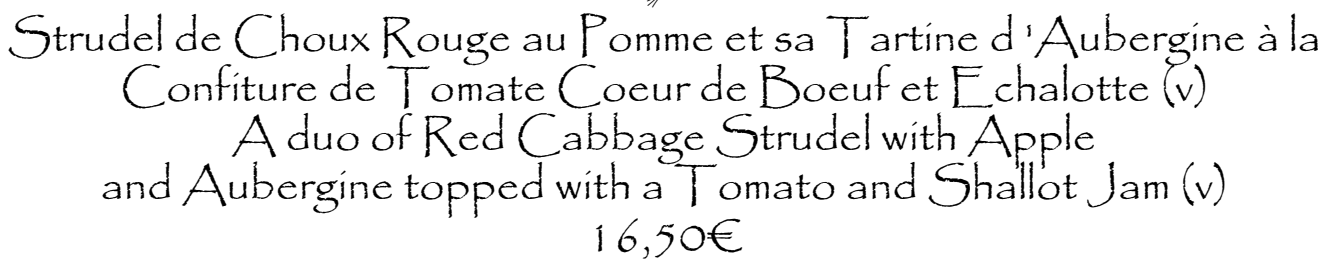 Strudel de Choux Rouge au Pomme et sa Tartine d'Aubergine à la
Confiture de Tomate Coeur de Boeuf et Echalotte (v)
A duo of Red Cabbage Strudel with Apple
and Aubergine topped with a Tomato and Shallot Jam (v)
16,50€